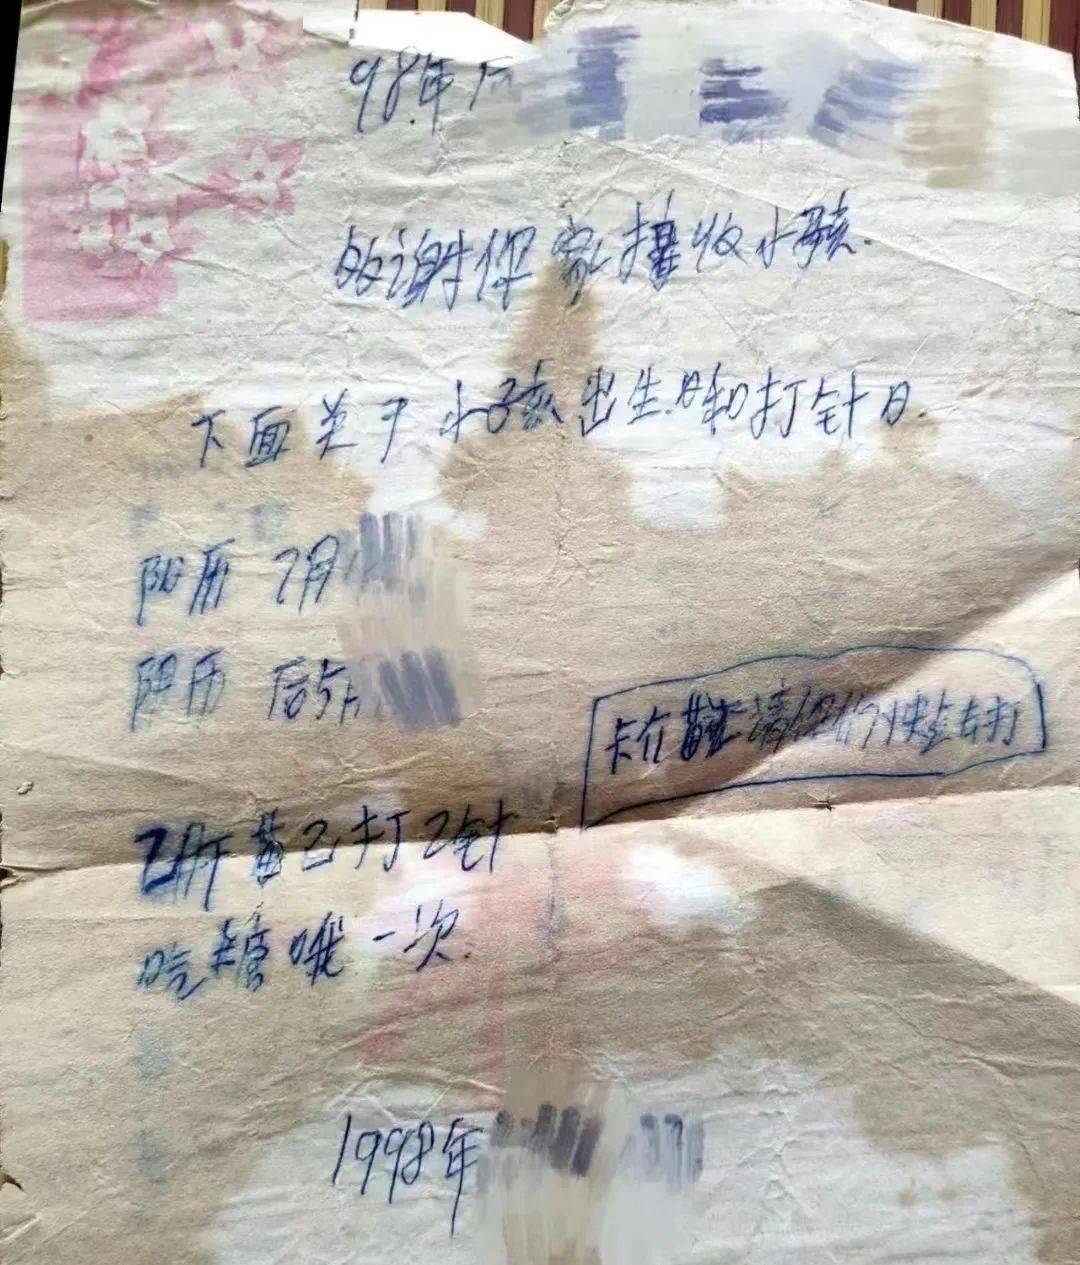 98年后
的谢你家接收小孩.
下面关于小孩出生日和打针日.
阳历 7月
阴历 后5月
卡介苗 请你们快去打
乙肝苗已打2针
吃糖哦一次.
1998年